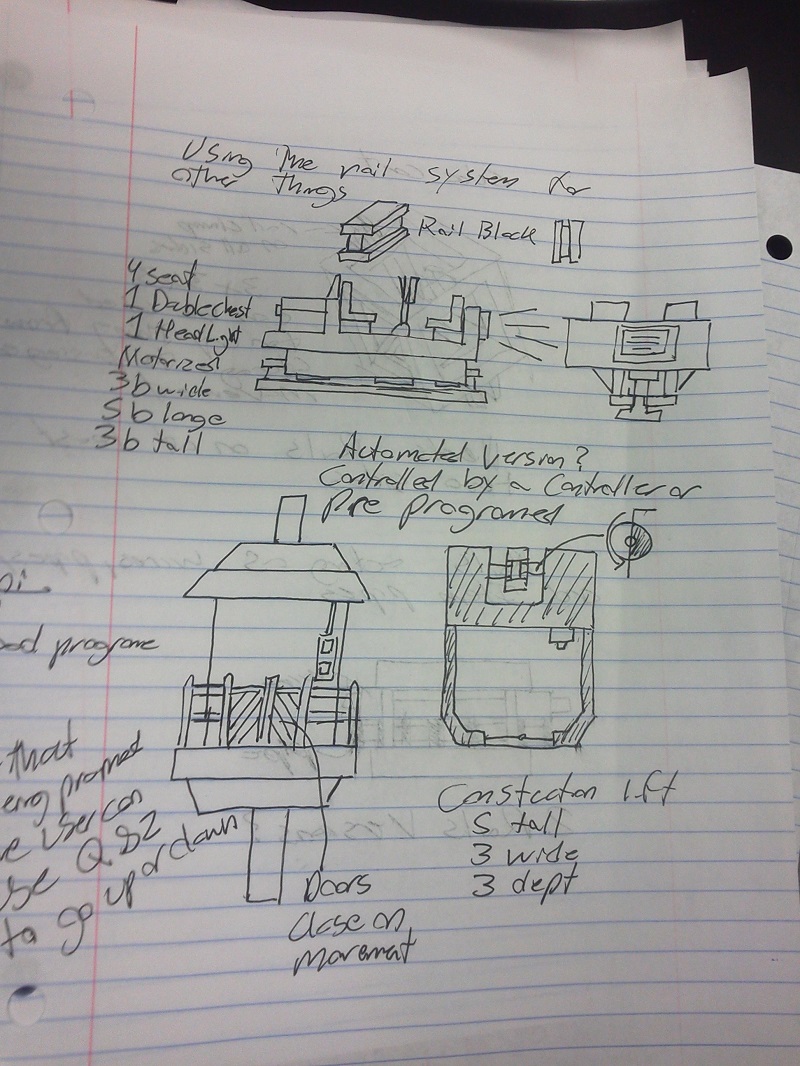 Using The rail system for
other things
Rail Block
4 seat
1 Double chest
1 HeadLight
Motorized
3b wide
5 b longe
3b tall
Automated Version?
Controlled by a Controller or
Pre programed
programe
that
e user can
use Q &Z
to go up or down
Doors
close on
movement
Constuction lift
5 tall
3 wide
3 dept